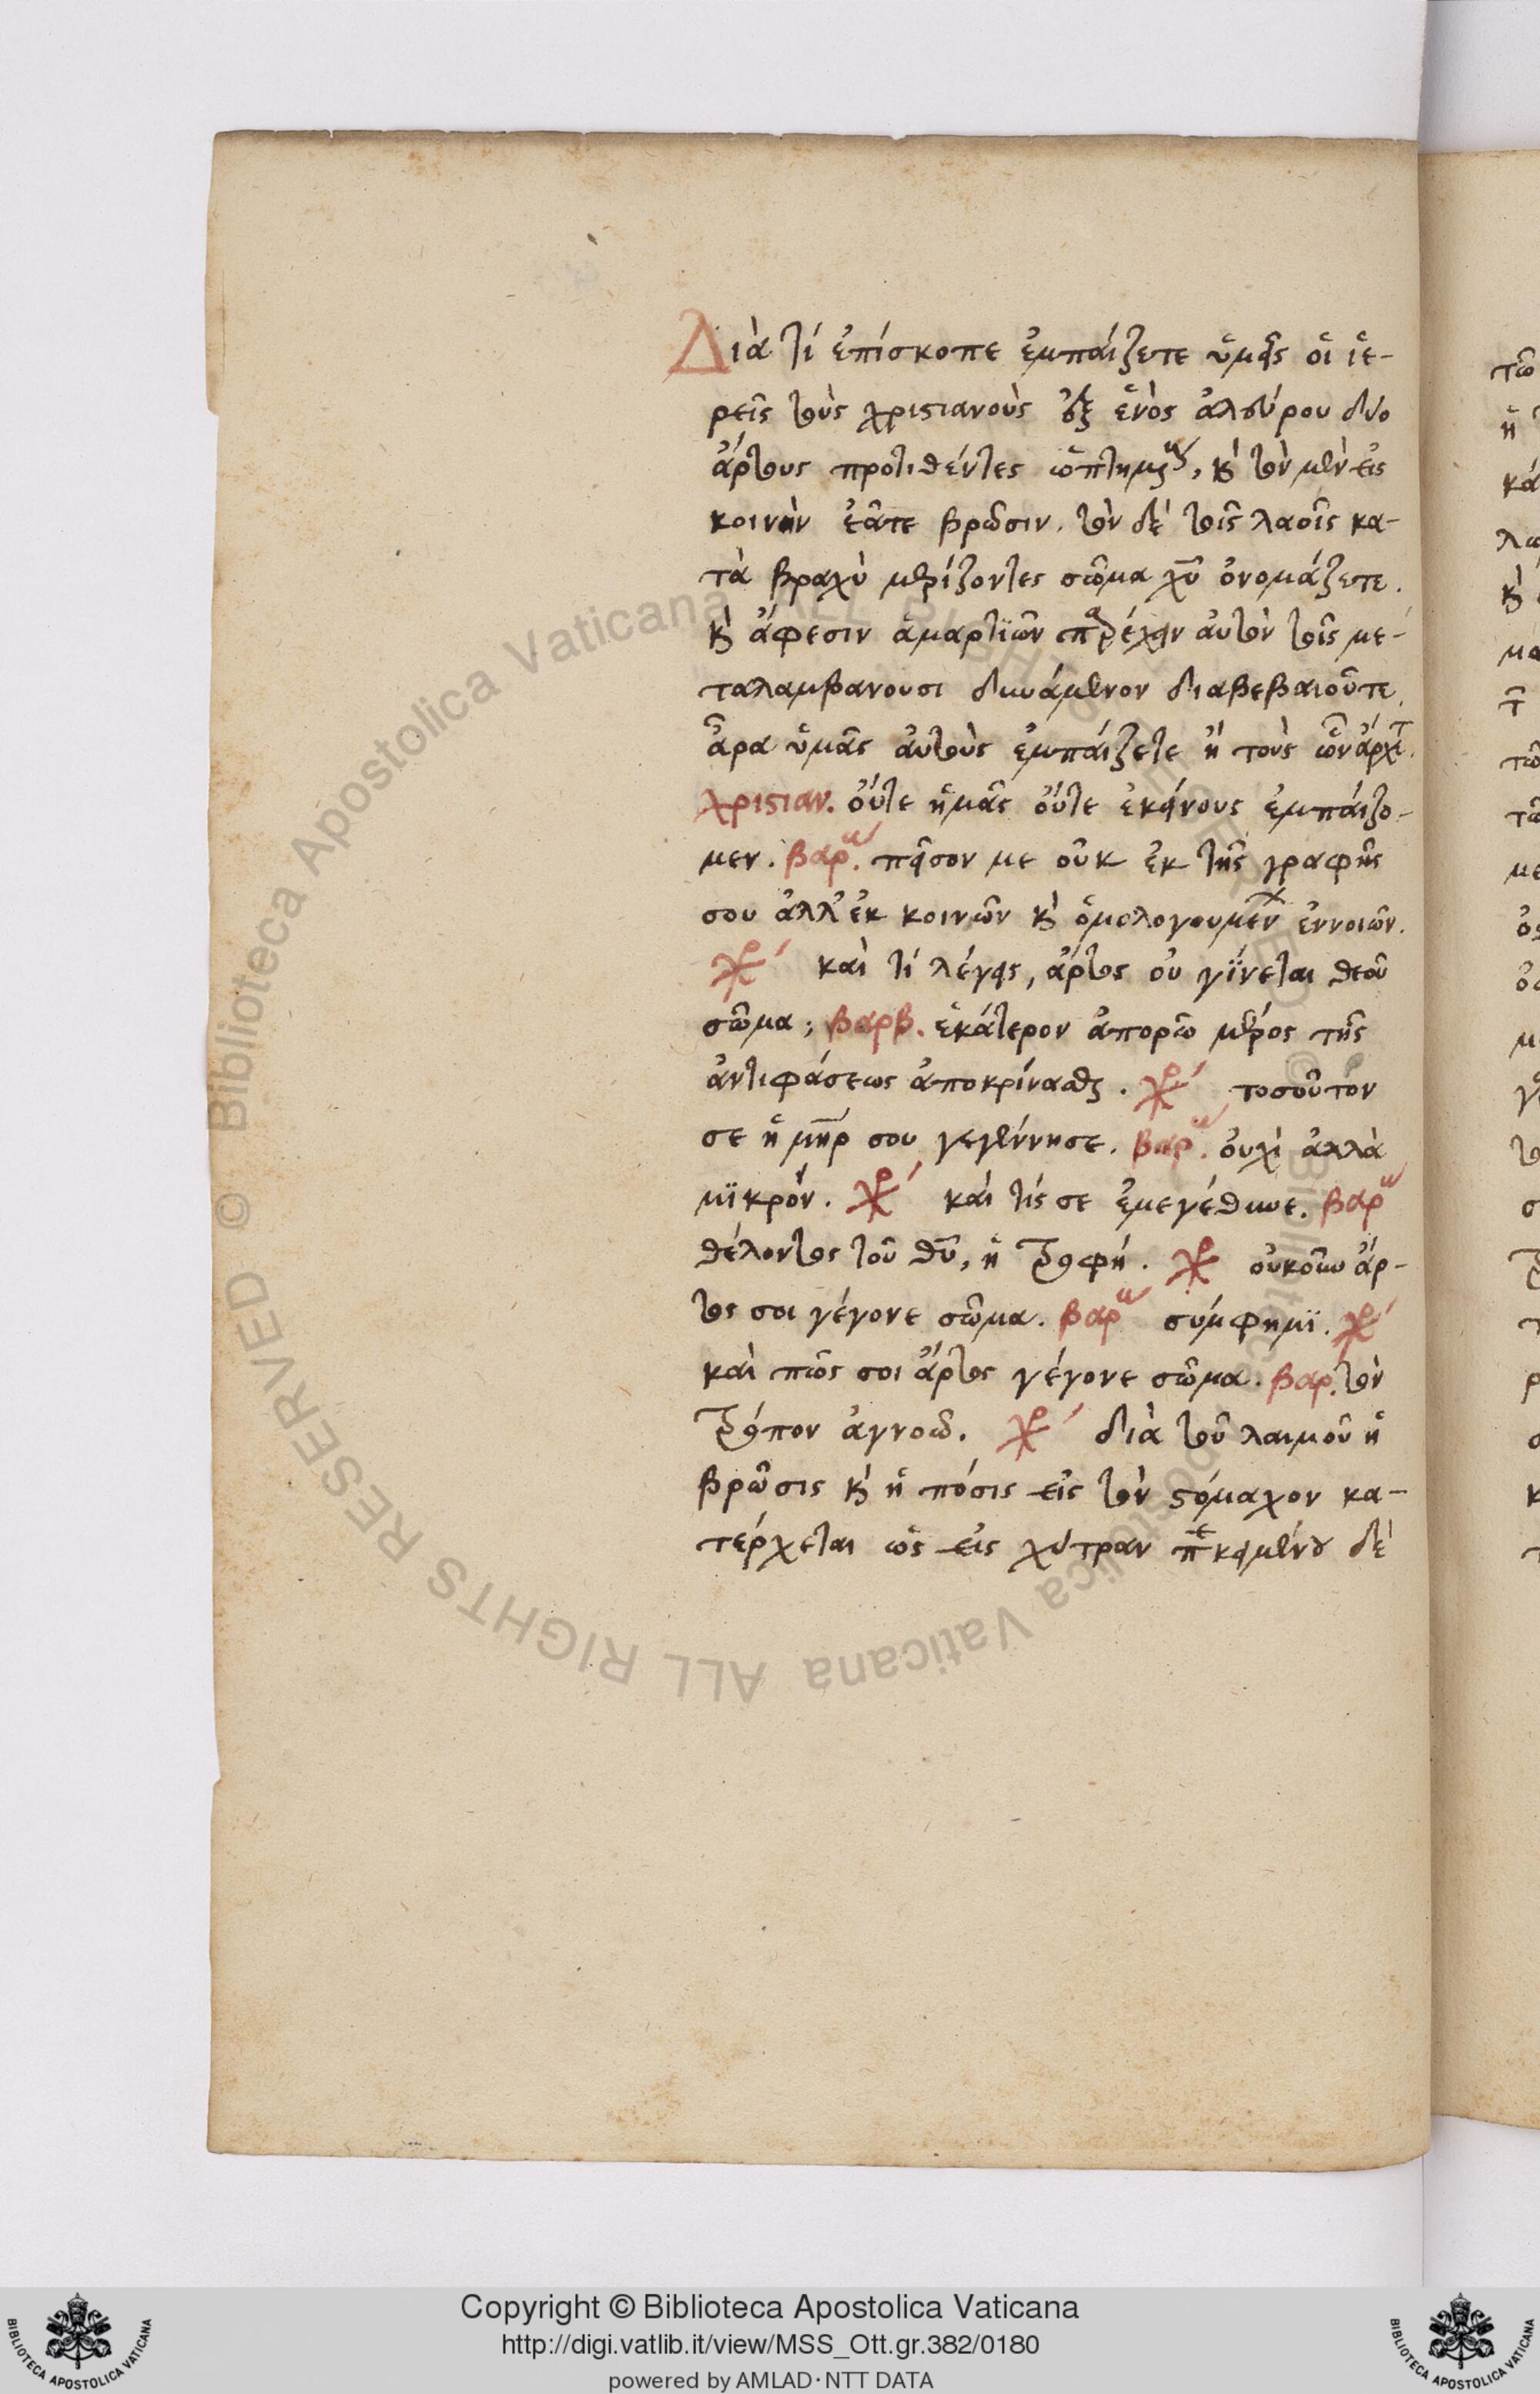 Διὰ τί ἐπίσκοπε ἐμπαίζετε ὑμεῖς οἱ ἱε-
ρεῖς τοὺς χριστιανοὺς ἐξ ἑνὸς ἀλεύρου δύο
ἄρτους προτιθέντες ὠπτημένους, κὶ τὸν μὲν εἰς
κοινὴν ἐᾶτε βρῶσιν. τὸν δὲ τοῖς λαοῖς κα-
τὰ βραχὺ μερίζοντες σῶμα χῦ ὀνομάζετε.
κὶ ἄφεσιν ἁμαρτιῶν παρέχειν αὐτὸν τοῖς με-
ταλαμβανουσι δυνάμενον διαβεβαιοῦτε.
ἆρα ὑμᾶς αὐτοὺς ἐμπαίζετε ἢ τοὺς ὧν ἄρχετ
χριστιαν. οὔτε ἡμᾶς οὔτε ἐκείνους ἐμπαίζο-
μεν. βαρ. πεῖσον με οὐκ ἐκ τῆς γραφῆς
σου ἀλλ' ἐκ κοινῶν κὶ ὁμολογουμένων ἐννοιῶν.
χρ και τί λέγεις, ἄρτος οὐ γίνεται θεοῦ
σῶμα; βαρβ. ἑκάτερον ἀπορῶ μέρος τῆς
ἀντιφάσεως ἀποκρίνασθαι. χρ τοσοῦτόν
σε ἡ μηρ σου γεγέννησε. βαρ. οὐχὶ ἀλλὰ
μικρόν. χρ καὶ τίς σε ἐμεγέθυνε. βαρ
θέλοντος τοῦ θῦ, ἡ τροφή. χρ οὐκοῦν ἄρ-
τος σοι γέγονε σῶμα. βαρ σύμφημι. χρ
καὶ πῶς σοι ἄρτος γέγονε σῶμα. βαρ. τὸν
τρόπον ἀγνοῶ. χρ διὰ τοῦ λαιμοῦ ἡ
βρῶσις κὶ ἡ πόσις εἰς τὸν στόμαχον κα-
τέρχεται ὡς εἰς χύτραν περικειμένου δὲ
Copyright © Biblioteca Apostolica Vaticana
http://digi.vatlib.it/view/MSS_Ott.gr.382/0180
powered by AMLAD·NTT DATA